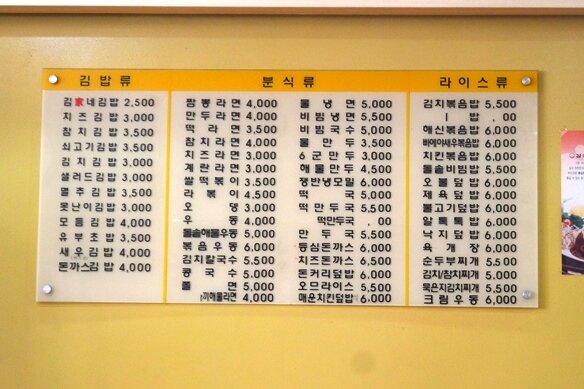 김밥류
김家네김밥 2,500
치즈김밥 3,000
참치김밥 3,500
쇠고기김밥 3,500
김치김밥 3,000
샐러드김밥 3,500
멸추김밥 3,500
못난이김밥 3,000
모듬김밥 4,000
유부초밥 3,500
새우김밥 4,000
돈까스김밥 4,000
분식류
짬뽕라면 4,000
만두라면 4,000
떡라면 3,500
참치라면 4,000
치즈라면 3,500
계란라면 3,000
쌀떡볶이 3,500
라볶이 4,500
오뎅 3,000
우동 4,000
돌솥해물우동 5,000
볶음우동 6,000
김치칼국수 5,500
콩국수 5,000
쫄면 5,000
해물라면 4,000
물냉면 5,000
비빔냉면 5,000
비빔국수 5,000
물만두 3,500
군만두 3,000
해물만두 4,500
쟁반냉모밀 6,000
떡국 5,000
떡만두국 5,500
떡만두국 .00
만두국 5,500
등심돈까스 6,000
치즈돈까스 6,500
돈커리덮밥 6,000
오므라이스 5,500
매운치킨덮밥 6,000
라이스류
김치볶음밥 5,500
밥 .00
해신볶음밥 6,000
새우볶음밥 6,000
치킨볶음밥 6,000
돌솥비빔밥 5,500
오불덮밥 6,000
제육덮밥 6,000
불고기덮밥 6,000
알톡톡밥 6,000
낙지덮밥 6,000
육개장 6,000
순두부찌개 5,500
김치/참치찌개 5,500
묵은지김치찌개 5,500
크림우동 6,000